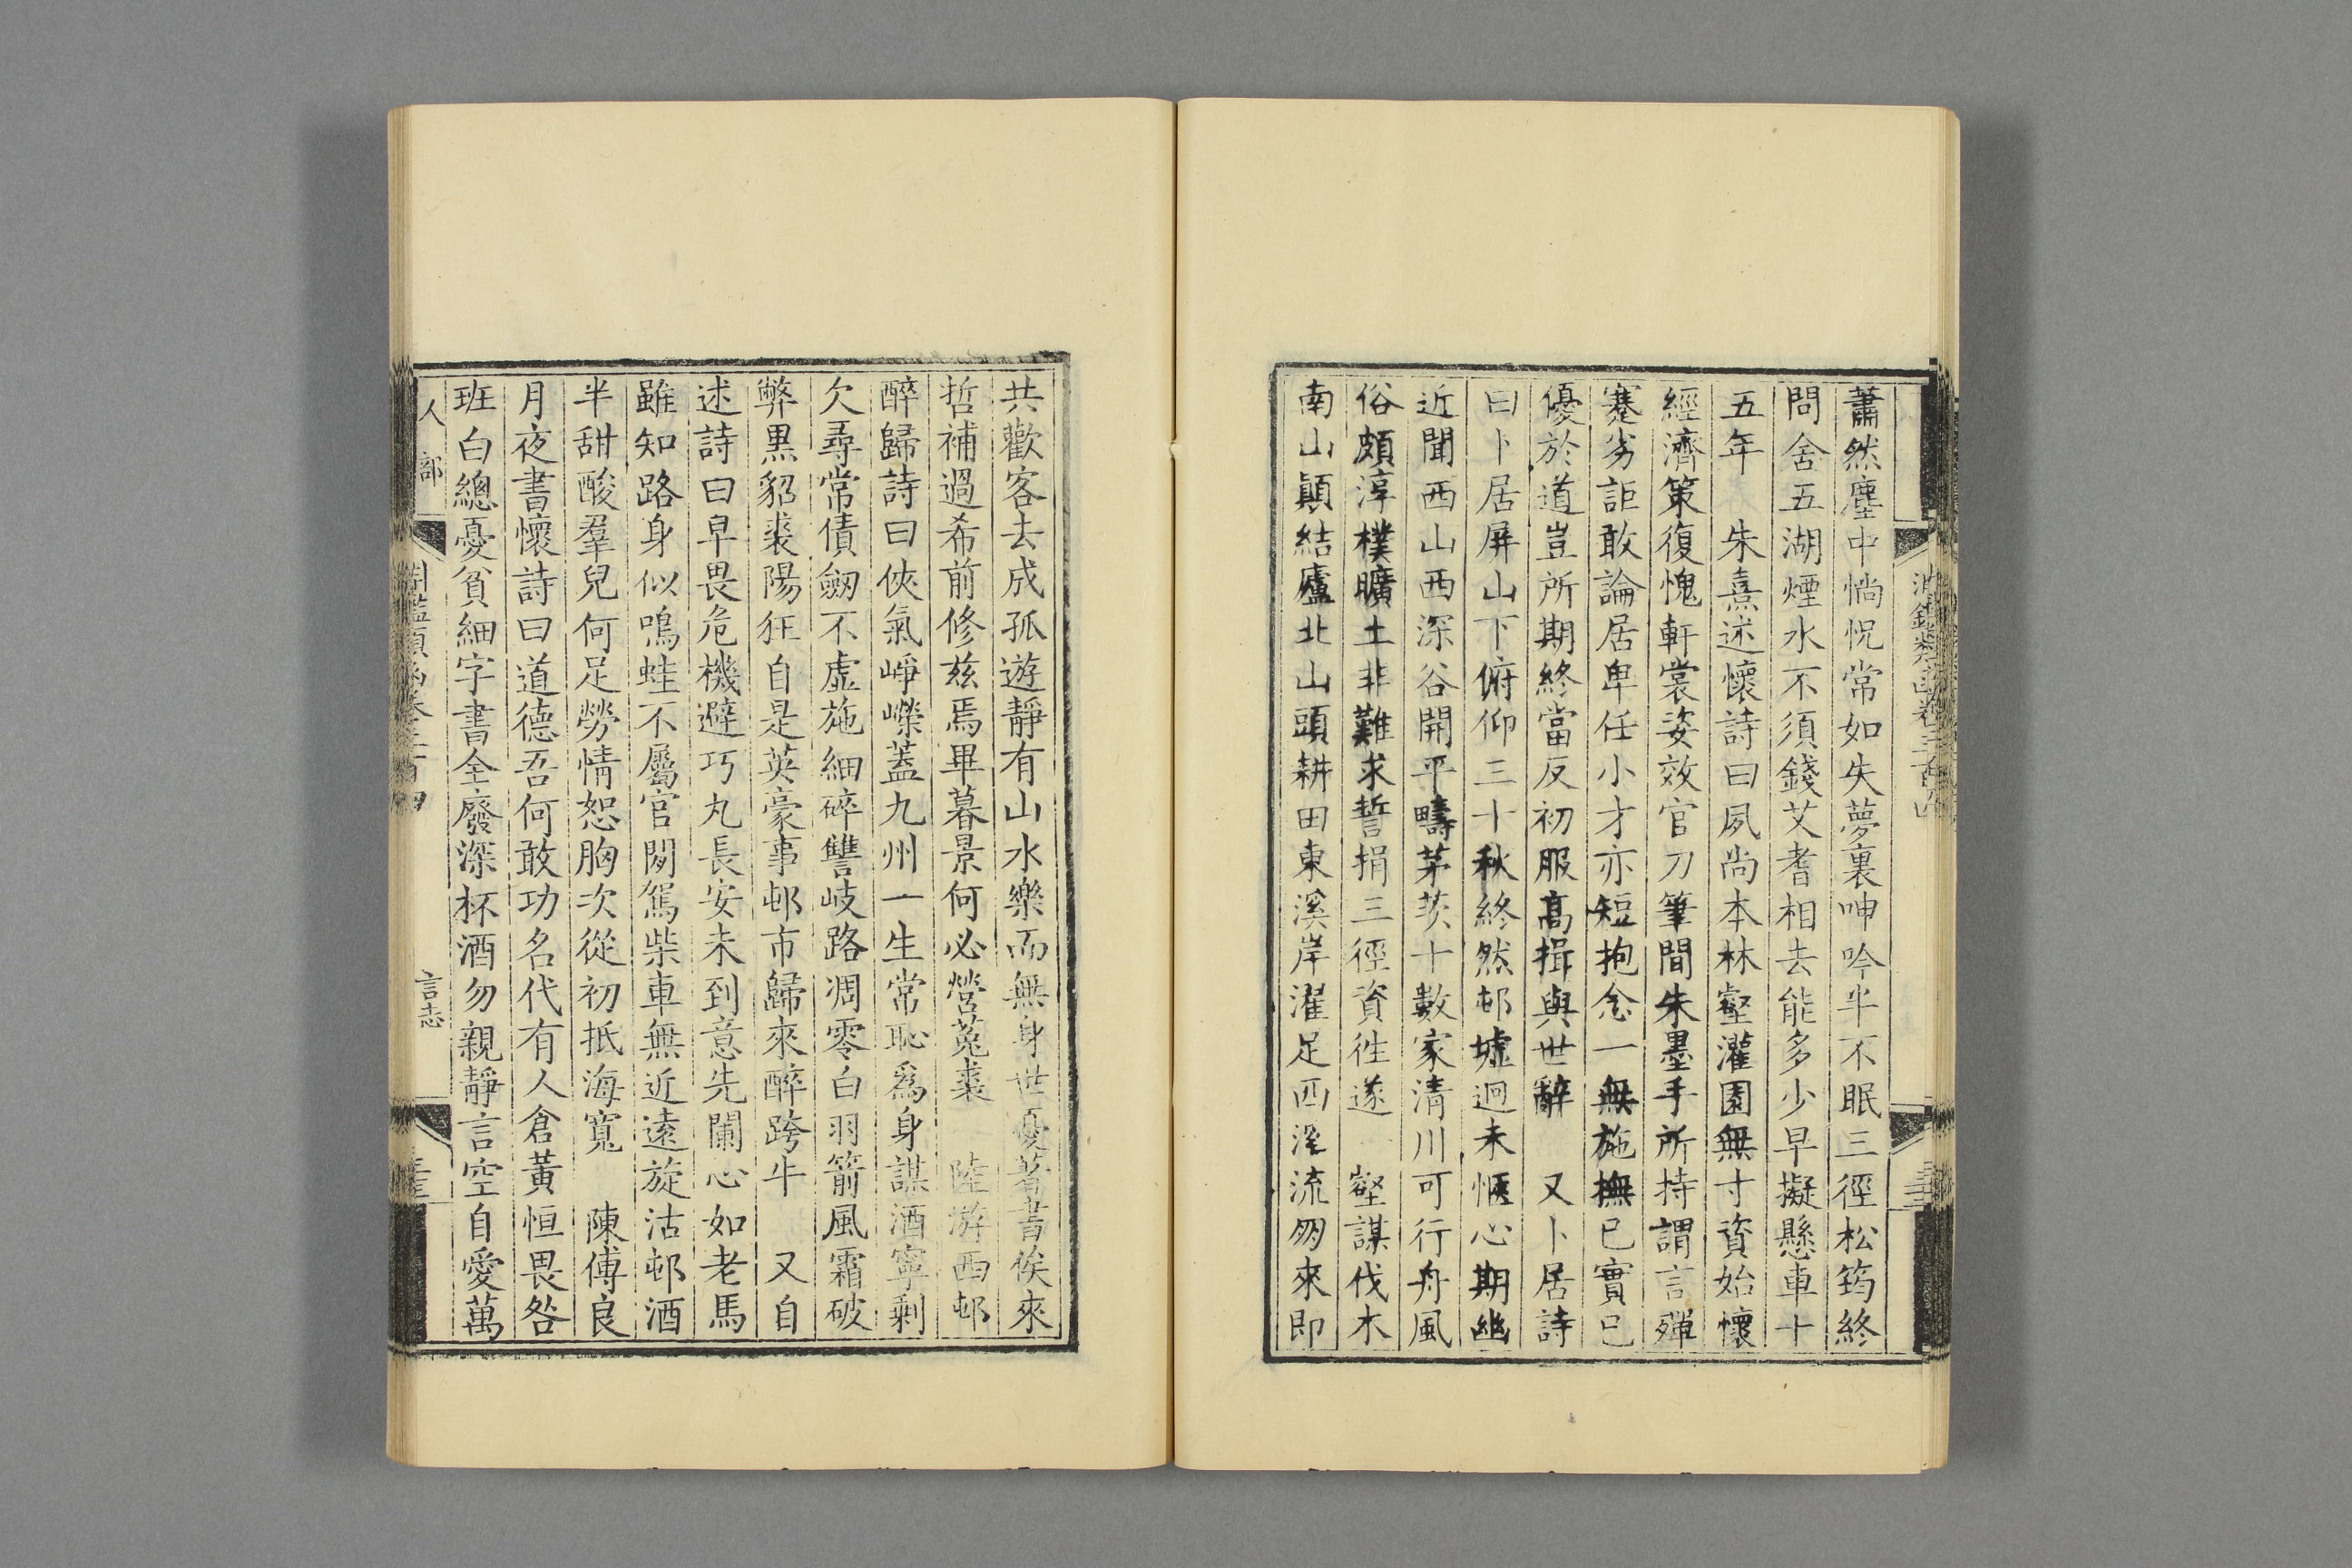 蕭然塵中惝怳常如失夢裏呻吟半不眠三徑松筠終
問舍五湖煙水不須錢艾耆相去能多少早擬懸車十
五年　朱熹述懷詩曰夙尚本林壑灌園無寸資始懷
經濟策復愧軒裳姿效官刀筆間朱墨手所持謂言殫
蹇劣詎敢論居卑任小才亦短抱念一無施撫已實已
優於道豈所期終當反初服高揖與世辭　又卜居詩
曰卜居屏山下俯仰三十秋終然邨墟迥未愜心期幽
近聞西山西深谷開平疇茅茨十數家清川可行舟風
俗頗淳樸曠土非難求誓捐三徑資徃遂　壑謀伐木
南山顛結廬北山頭耕田東溪岸濯足西溪流朋來即
共歡客去成孤遊靜有山水樂而無身世憂著書俟來
哲補過希前修兹焉畢暮景何必營菟裘　陸游西邨
醉歸詩曰俠氣崢嶸蓋九州一生常恥爲身謀酒寧剩
欠尋常債劒不虛施細碎讐岐路凋零白羽箭風霜破
弊黑貂裘陽狂自是英豪事邨市歸來醉跨牛　又自
述詩曰早畏危機避巧丸長安未到意先闌心如老馬
雖知路身似鳴蛙不屬官閑駕柴車無近遠旋沽邨酒
半甜酸羣兒何足勞情恕胸次從初抵海寬　陳傅良
月夜書懷詩曰道德吾何敢功名代有人倉黃恒畏咎
班白總憂貧細字書全廢深杯酒勿親靜言空自愛萬
人部
言志